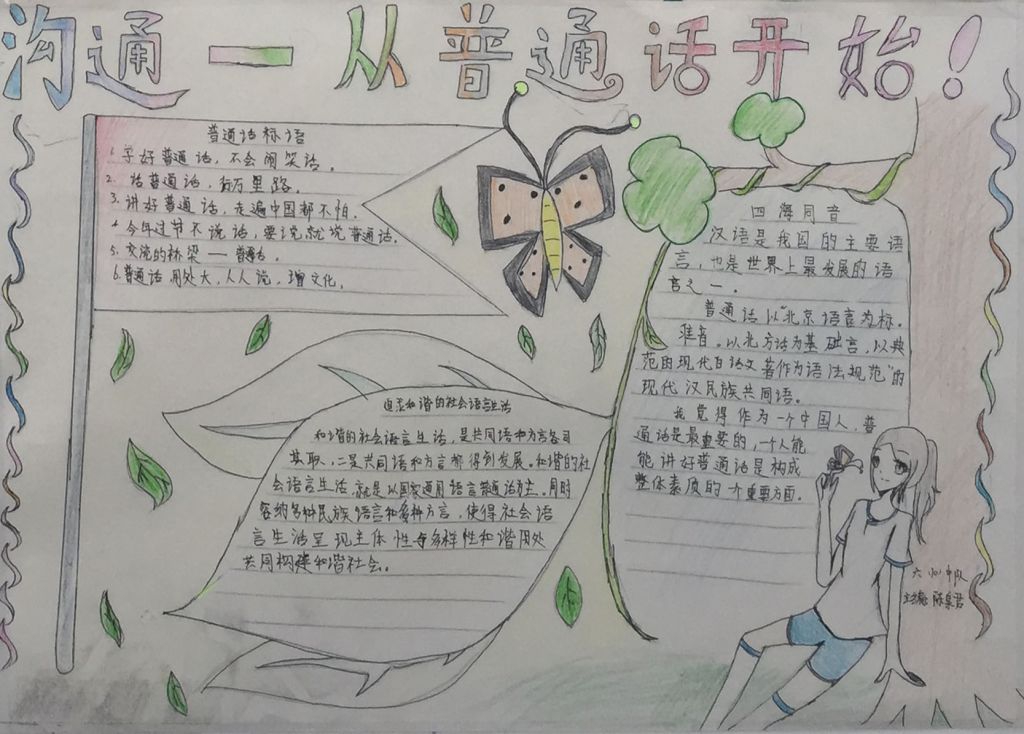 沟通一从普通话开始！
普通话标语
1. 学好普通话，不会闹笑话。
2. 话普通话，行万里路。
3. 讲好普通话，走遍中国都不怕。
4. 今年过节不说话，要说就说普通话。
5. 交流的桥梁——普通话。
6. 普通话用处大，人人说，增文化。
四海同音
汉语是我国的主要语
言，也是世界上最发展的语
言之一。
普通话以"北京语音为标。
准音。以北方话为基础言，以典
范的现代白话文著作为语法规范"的
现代汉民族共同语。
我觉得作为一个中国人，普
通话是最重要的，一个人能
能讲好普通话是构成
整体素质的一个重要方面。
和谐的社会语言生活
和谐的社会语言生活，是共同语和方言各司
其职，二是共同语和方言都得到发展。和谐的社
会语言生活，就是以国家通用语言普通话为主。同时
容纳多种民族语言和多种方言，使得社会语
言生活呈现主体性与多样性和谐用处
共同构建和谐社会。
中队